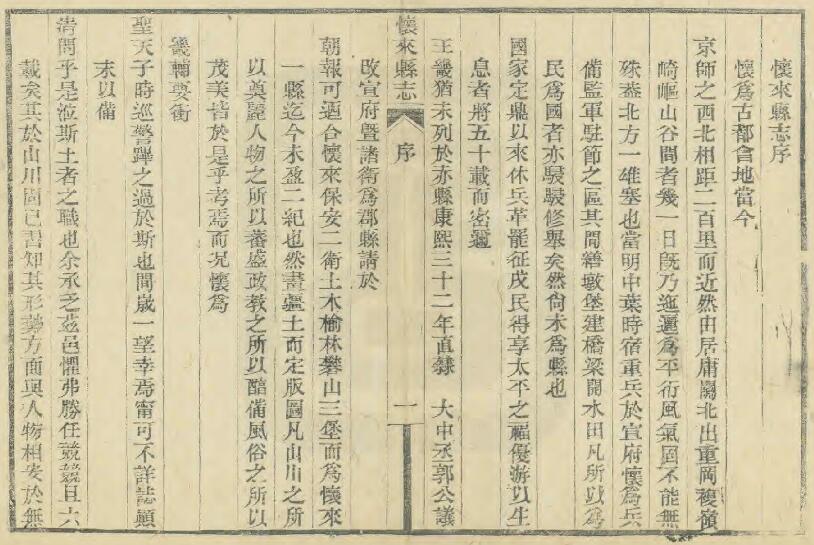 懷來縣志序
懷爲古都會地當今
京師之西北相距二百里而近然由居庸關北出重岡複嶺
崎嶇山谷間者幾一日旣乃迤邐爲平衍風氣固不能無
殊蓋北方一雄塞也當明中葉時宿重兵於宣府懷爲兵
備監軍駐節之區其間繕墩堡建橋梁開水田凡所以爲
民爲國者亦駸駸修舉矣然尙未爲縣也
國家定鼎以來休兵革罷征戍民得享太平之福優游以生
息者將五十載而密邇
王畿猶未列於赤縣康熙三十二年直隸 大中丞郭公議
懷來縣志 序 一
改宣府暨諸衛爲郡縣請於
朝報可迺合懷來保安二衛土木榆林礬山三堡而爲懷來
一縣迄今未盈二紀也然畫疆土而定版圖凡山川之所
以奠麗人物之所以蕃盛政教之所以備風俗之所以
茂美皆於是乎考焉而况懷爲
畿輔要衝
聖天子時巡警蹕之過於斯也間歲一望幸焉甯可不詳誌顚
末以備
淸問乎是涖斯土者之職也余承乏茲邑懼弗勝任兢兢且六
載矣其於山川固已書知其形勢方面與人物相安於無